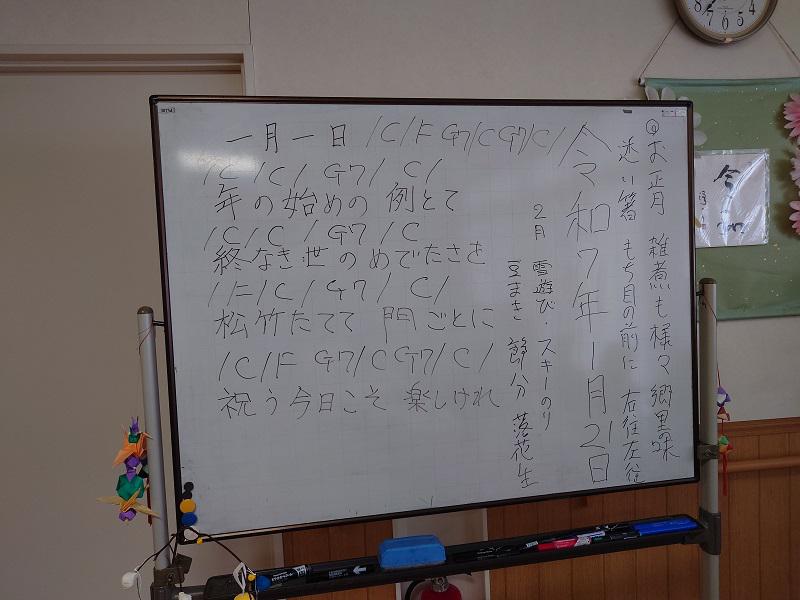 一月一日 /C/F G7/C G7/C/
/C/ /C/ G7/ C/
年の始めの 例とて
/C/C /G7/ C
終なき世のめでたさを
/F/C/ G7/ C/
松竹たてて 門ごとに
/C/F G7/C G7/C/
祝う今日こそ 楽しけれ
お正月 雑煮も様々 郷里の味
迷い箸 もち目の前に 右往左往
令和7年1月21日
2月 雪遊び・スキーのり
豆まき 節分 落花生